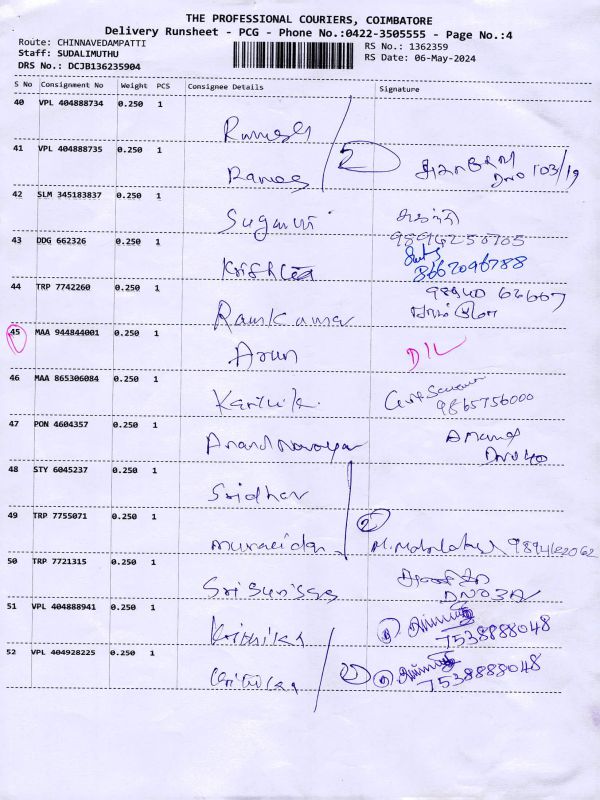 THE PROFESSIONAL COURIERS, COIMBATORE
Delivery Runsheet - PCG - Phone No.:0422-3505555 - Page No.:4
Route: CHINNAVEDAMPATTI
RS No.: 1362359
Staff: SUDALIMUTHU
RS Date: 06-May-2024
DRS No.: DCJB136235904
S No Consignment No Weight PCS Consignee Details Signature
40 VPL 404888734 0.250 1 Ramesh
41 VPL 404888735 0.250 1 Ramesh 2 DNO 103/19
42 SLM 345183837 0.250 1 Suganthi
43 DDG 662326 0.250 1 8662096788
44 TRP 7742260 0.250 1 Ramkumar
45 MAA 944844001 0.250 1 Arun D/L
46 MAA 865306084 0.250 1 Karthik 9865756000
47 PON 4604357 0.250 1 Anand DNO 40
48 STY 6045237 0.250 1 Sridhar
49 TRP 7755071 0.250 1 2
50 TRP 7721315 0.250 1
51 VPL 404888941 0.250 1 7538888048
52 VPL 404928225 0.250 1 2 7538888048